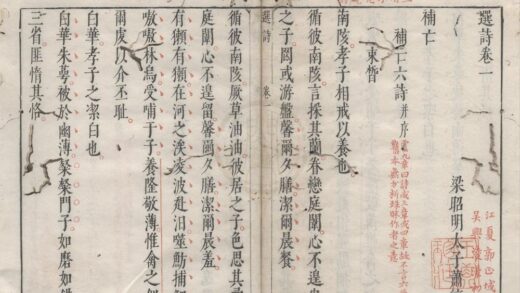 選詩卷一
梁昭明太子蕭
補亡
補亡六詩
束晳
南陔孝子相戒以養也
循彼南陔言採其蘭眷戀庭闈心不遑安
之子罔或游盤馨爾夕膳潔爾晨餐
選詩 卷一
循彼南陔厥草油油彼居之子色思其
庭闈心不遑留馨爾夕膳潔爾晨羞
有獺有獺在河之涘凌波赴汨噬魴捕
嗷嗷林烏受哺于子養隆敬薄惟禽之
爾虔以介丕祉
白華孝子之潔白也
白華朱萼被於幽薄粲粲門子如磨如
三省匪惰其恪